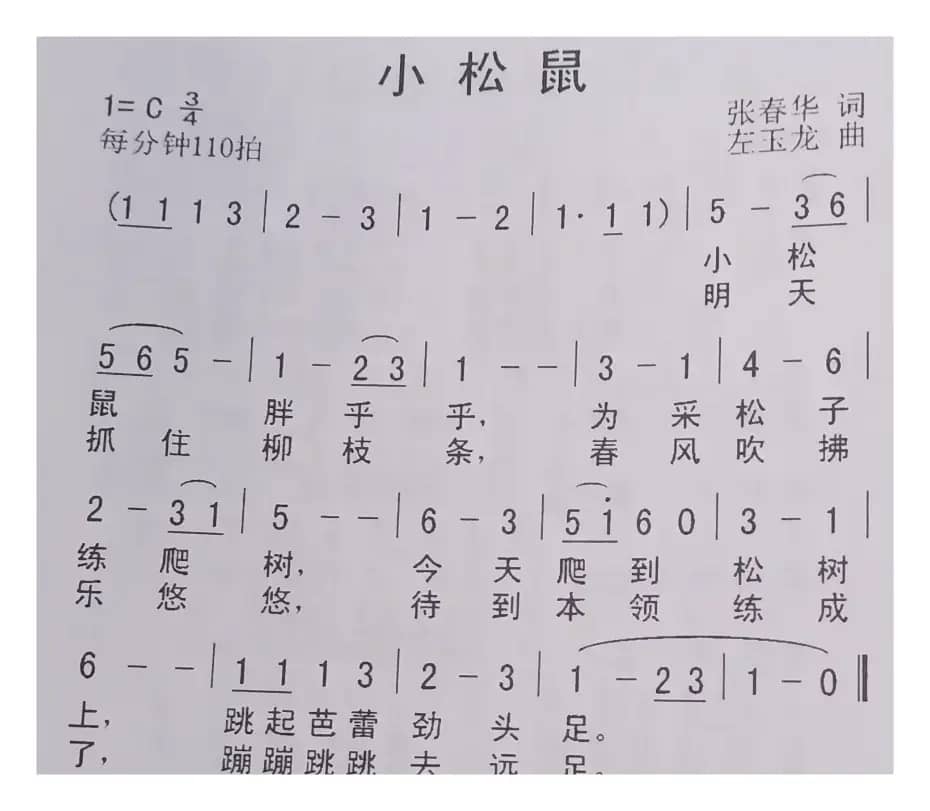 小松鼠
1= C 3/4
张春华 词
每分钟110拍
左玉龙 曲
(1 1 1 3 | 2 - 3 | 1 - 2 | 1· 1 1) | 5 - 3 6 |
小 松
明 天
5 6 5 - | 1 - 2 3 | 1 - - | 3 - 1 | 4 - 6 |
鼠 胖 乎 乎, 为 采 松 子
抓 住 柳 枝 条, 春 风 吹 拂
2 - 3 1 | 5 - - | 6 - 3 | 5 i 6 0 | 3 - 1 |
练 爬 树, 今 天 爬 到 松 树
乐 悠 悠, 待 到 本 领 练 成
6 - - | 1 1 1 3 | 2 - 3 | 1 - 2 3 | 1 - 0 ‖
上, 跳 起 芭 蕾 劲 头 足。
了, 蹦 蹦 跳 跳 去 远 足。